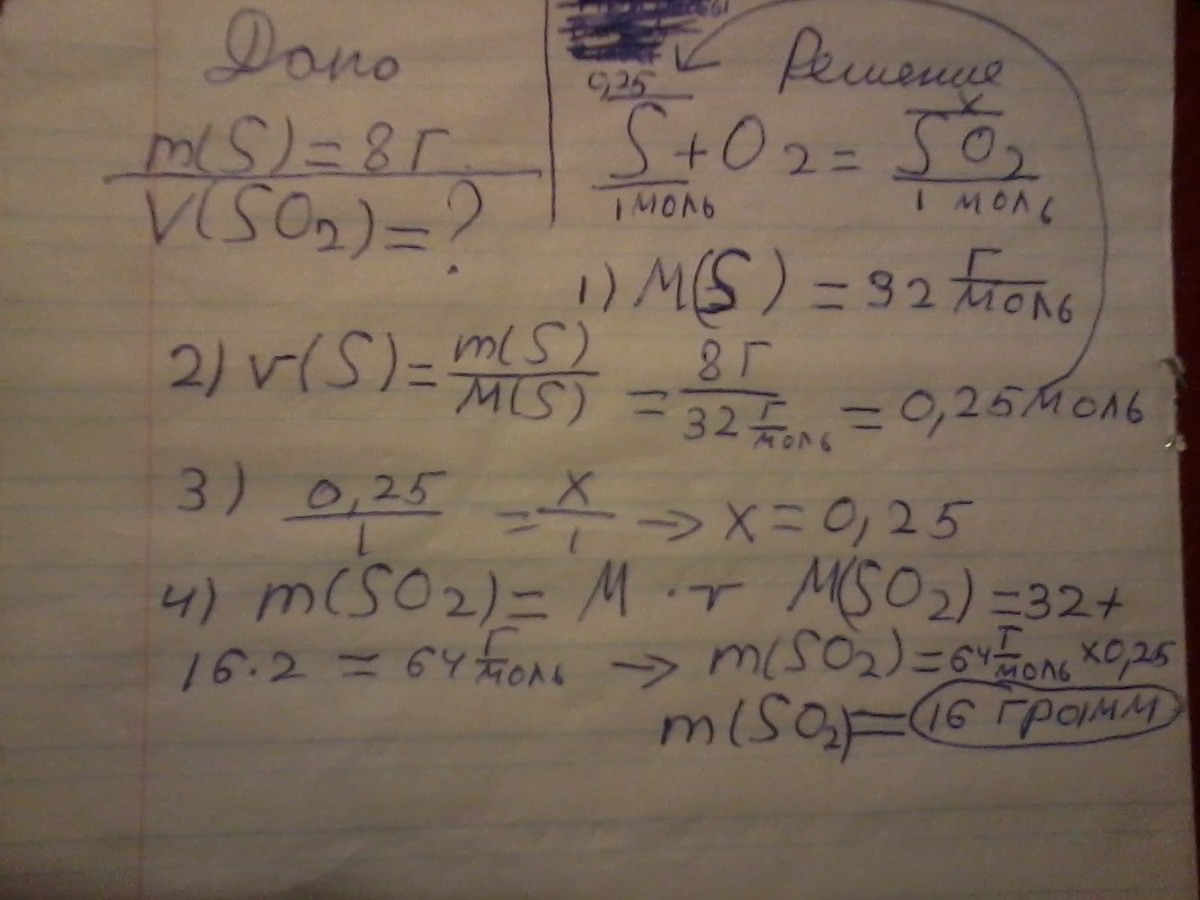 Дано
m(S)=8г.
V(SO2)=?
Решение
0,25 x
S+O2=SO2
1моль 1 моль
1) M(S)=32 г/моль
2) ν(S)=m(S)/M(S)=8г/32 г/моль=0,25моль
3) 0,25/1=x/1→x=0,25
4) m(SO2)=M·ν M(SO2)=32+
16·2=64 г/моль→m(SO2)=64 г/моль×0,25
m(SO2)=16 грамм